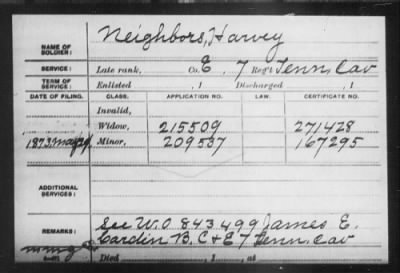 NAME OF SOLDIER: Neighbors, Harvey
SERVICE: Late rank, Co. E, 7 Reg't Tenn. Cav
TERM OF SERVICE: Enlisted , 1 Discharged , 1
DATE OF FILING. CLASS. APPLICATION NO. LAW. CERTIFICATE NO.
Invalid,
Widow, 215509 271428
1873 May 29 Minor, 209537 167295
ADDITIONAL SERVICES:
REMARKS: See W.O. 843499 James E.
Cardin B. C & E 7 Tenn. Cav
Died , 1 , at